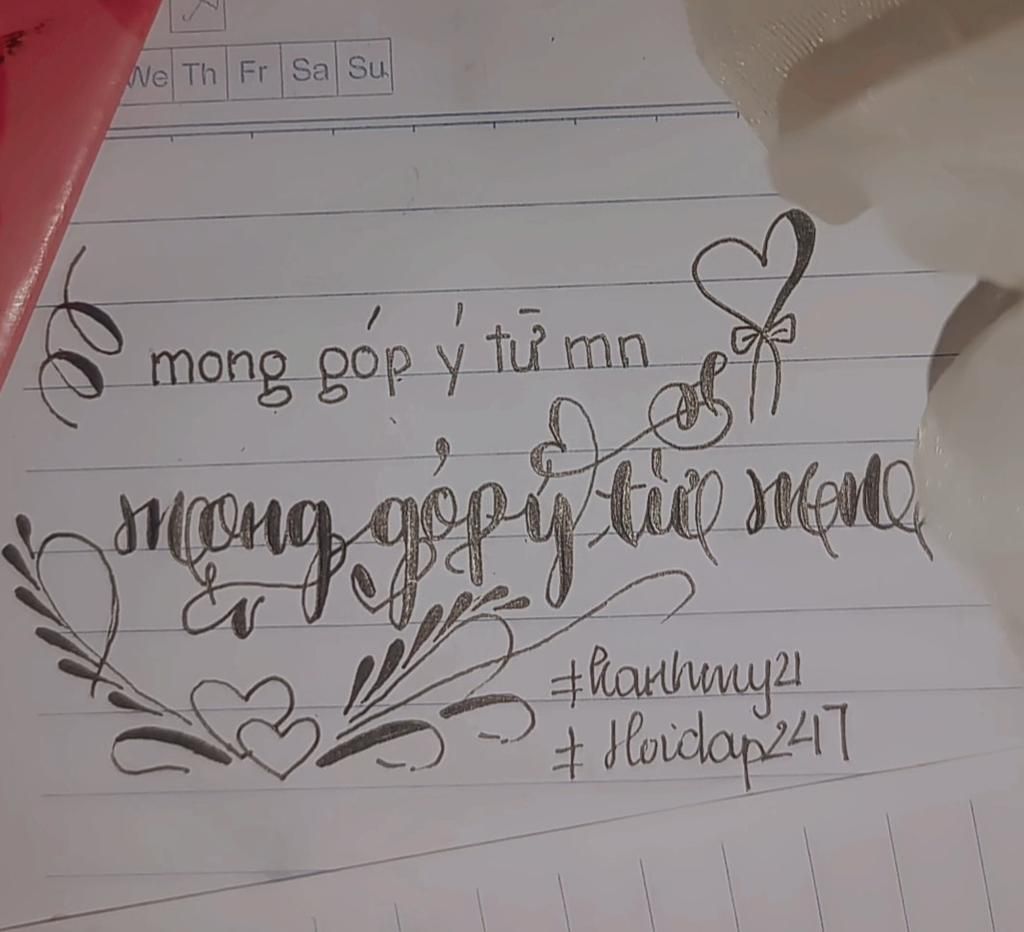 We Th Fr Sa Su
mong góp ý từ mn
mong góp ý từ mọng
#hanhmy21
#Hoidap247